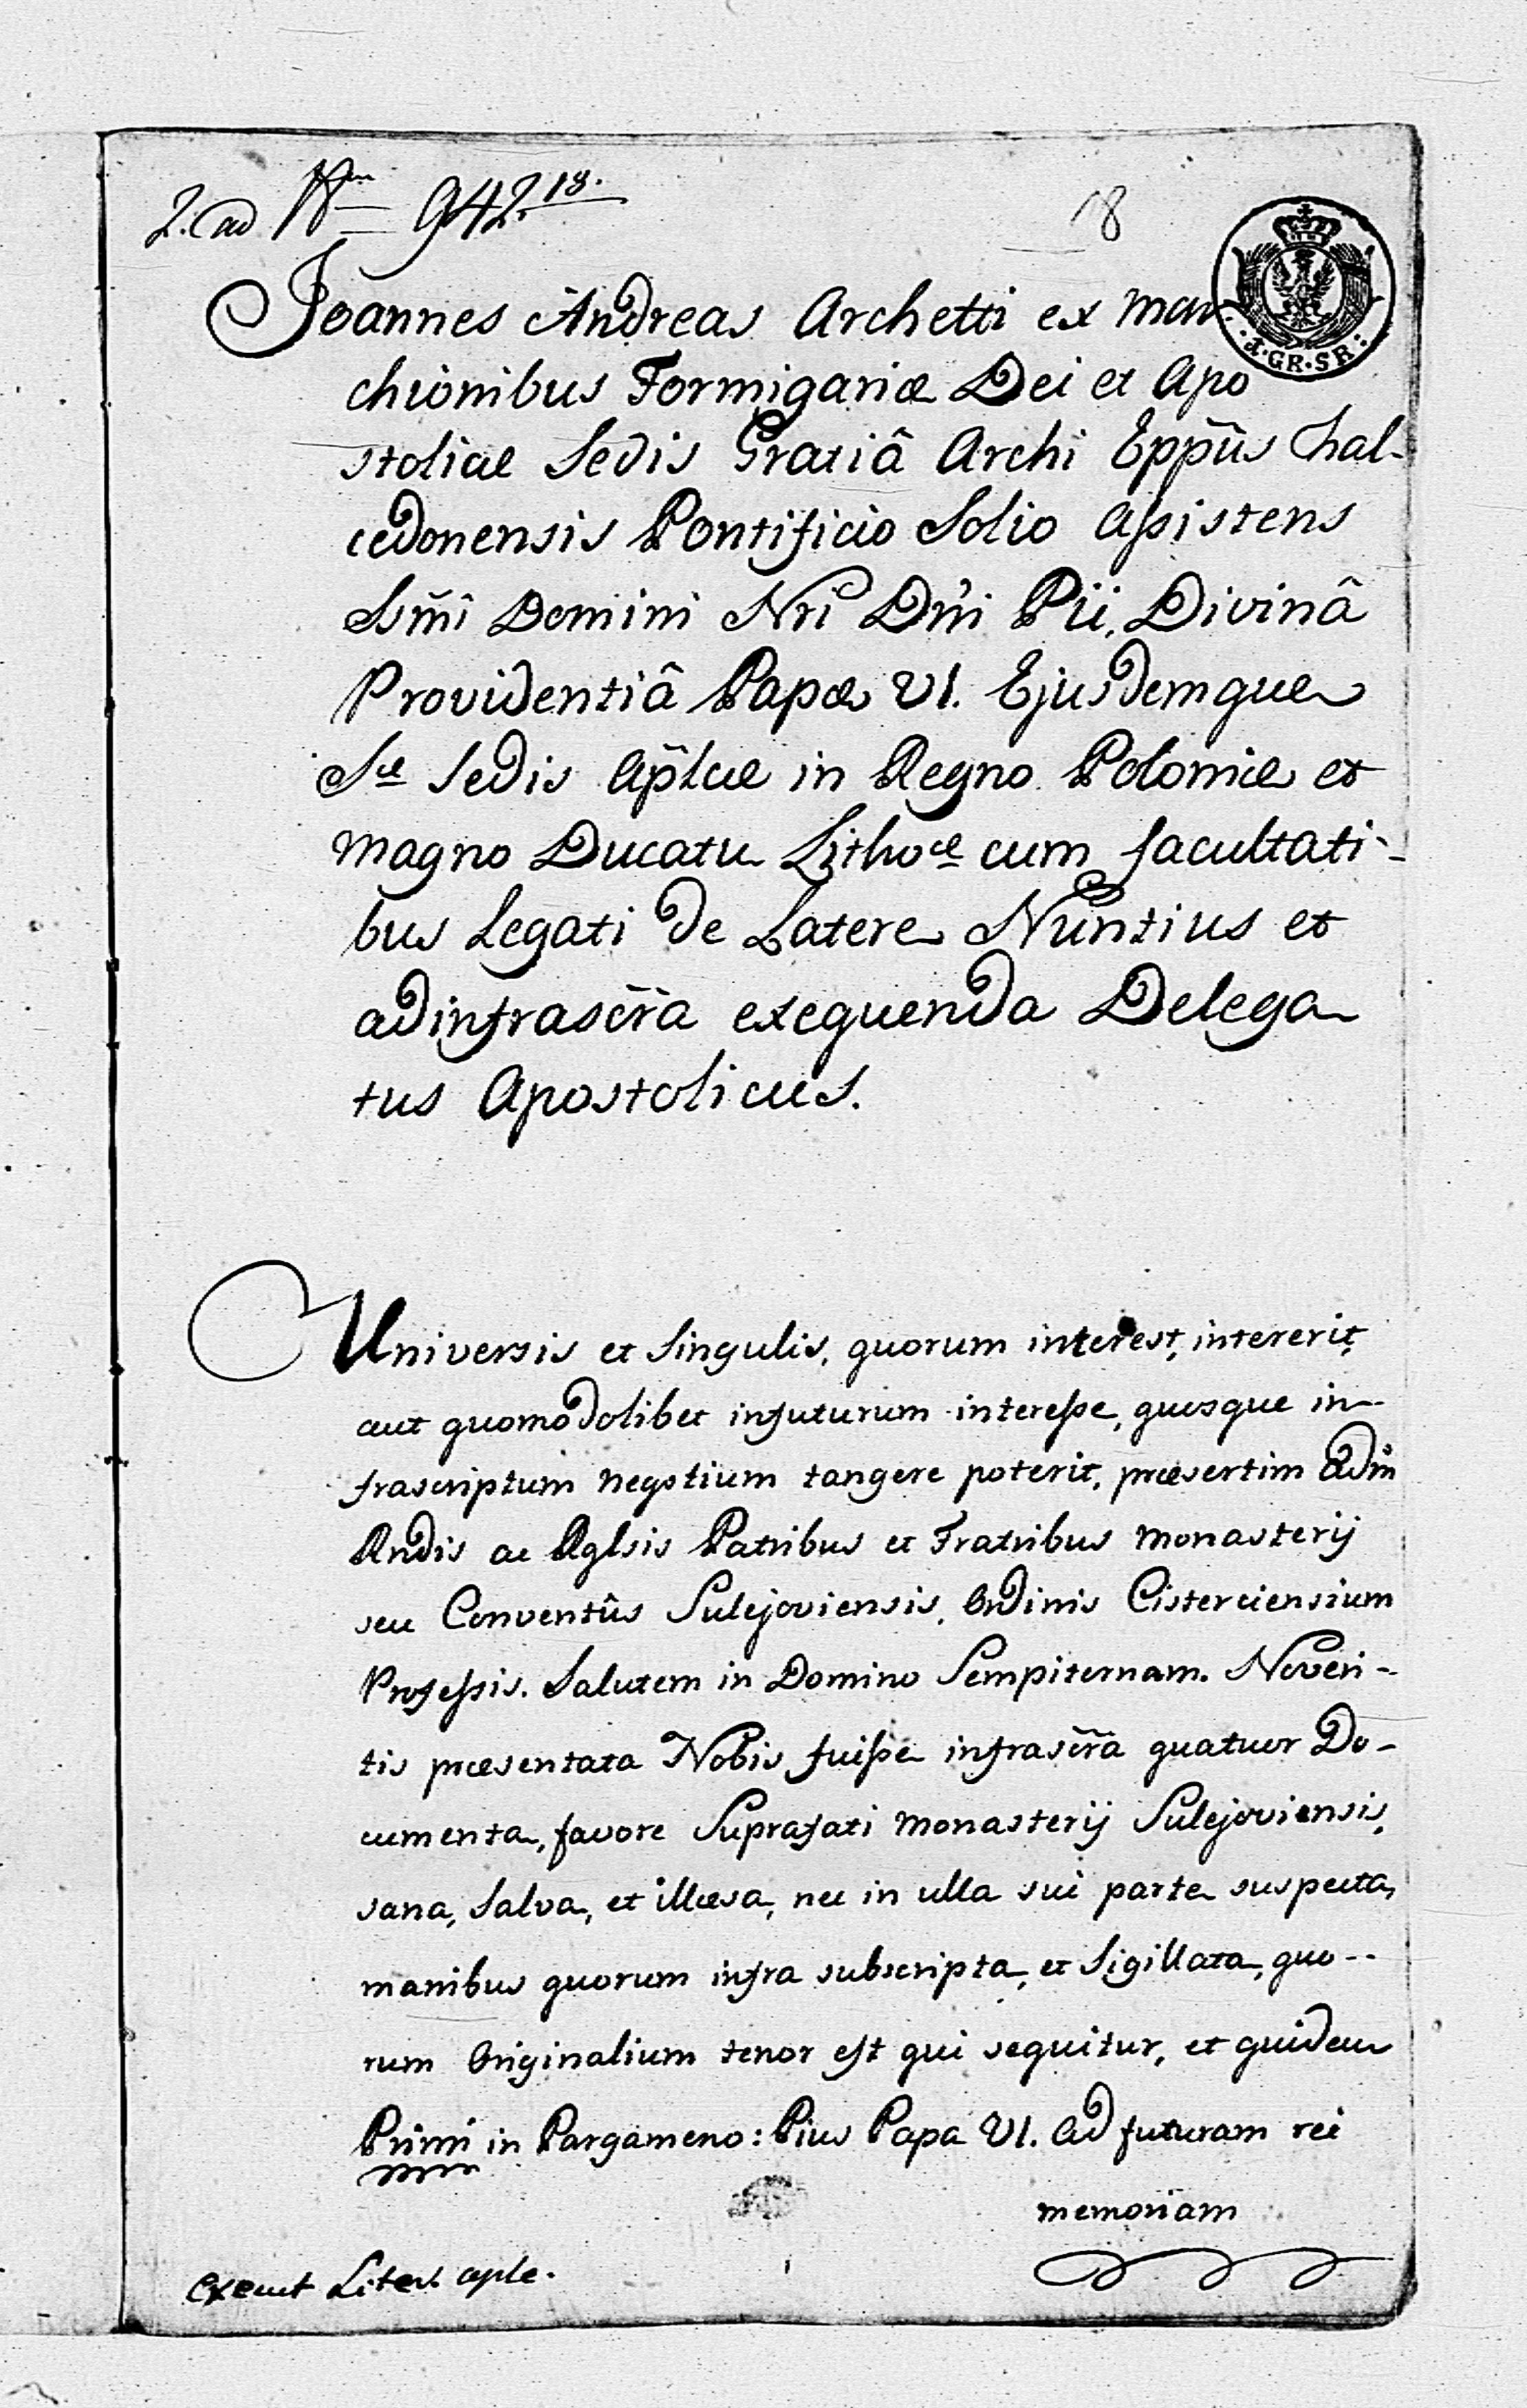 2. ad Nrm 942.18.
8
Joannes Andreas Archetti ex Mar
chionibus Formigariæ Dei et Apo
stolicæ Sedis Gratiâ Archi Eppũs Chal-
cedonensis Pontificio Solio Assistens
Ssm̃i Domini Nri Dñi Pii, Divinâ
Providentiâ Papæ VI. Ejusdemque
Sæ Sedis Ap̃licæ in Regno Poloniæ et
Magno Ducatu Lithoæ cum facultati-
bus Legati de Latere Nuntius et
ad infrascr̃a exequenda Delega
tus Apostolicus.
I.GR.SR:
Universis et Singulis, quorum interest, intererit,
aut quomodolibet in futurum interesse, quosque in-
frascriptum negotium tangere poterit, præsertim Adm
Rndis ac Rglsis Patribus et Fratribus Monasterij
seu Conventûs Sulejoviensis, Ordinis Cisterciensium
Professis. Salutem in Domino Sempiternam. Noveri-
tis præsentata Nobis fuisse infrascr̃a quatuor Do-
cumenta, favore Suprafati Monasterij Sulejoviensis,
sana, Salva, et illæsa, nec in ulla sui parte suspecta,
manibus quorum infra subscripta, et Sigillata, quo--
rum Originalium tenor est qui sequitur, et quidem
Primi in Pargameno: Pius Papa VI. Ad futuram rei
memoriam
Liter. aple.